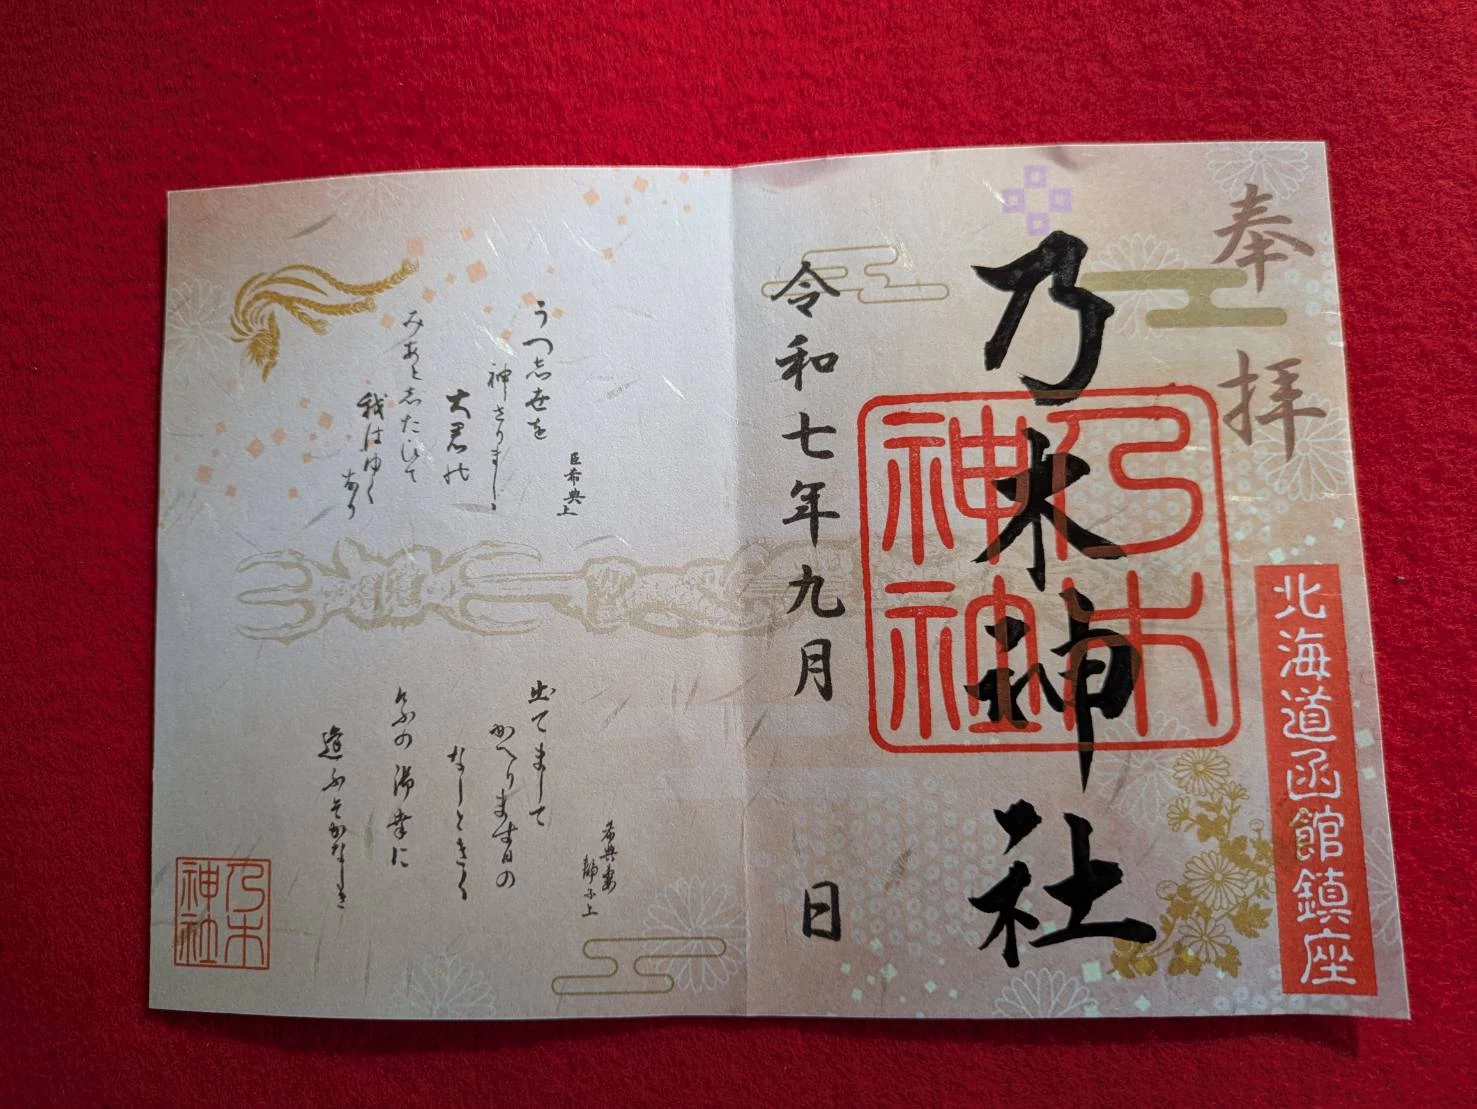 奉拝
北海道函館鎮座
乃木神社
乃木
神社
令和七年九月　日
臣希典上
うつ志世を
神さりまし〻
大君の
みあと志たひて
我はゆく
なり
希典妻
静子上
出てまして
かへります日の
なしときく
けふの御幸に
逢ふそかなしき
乃木
神社